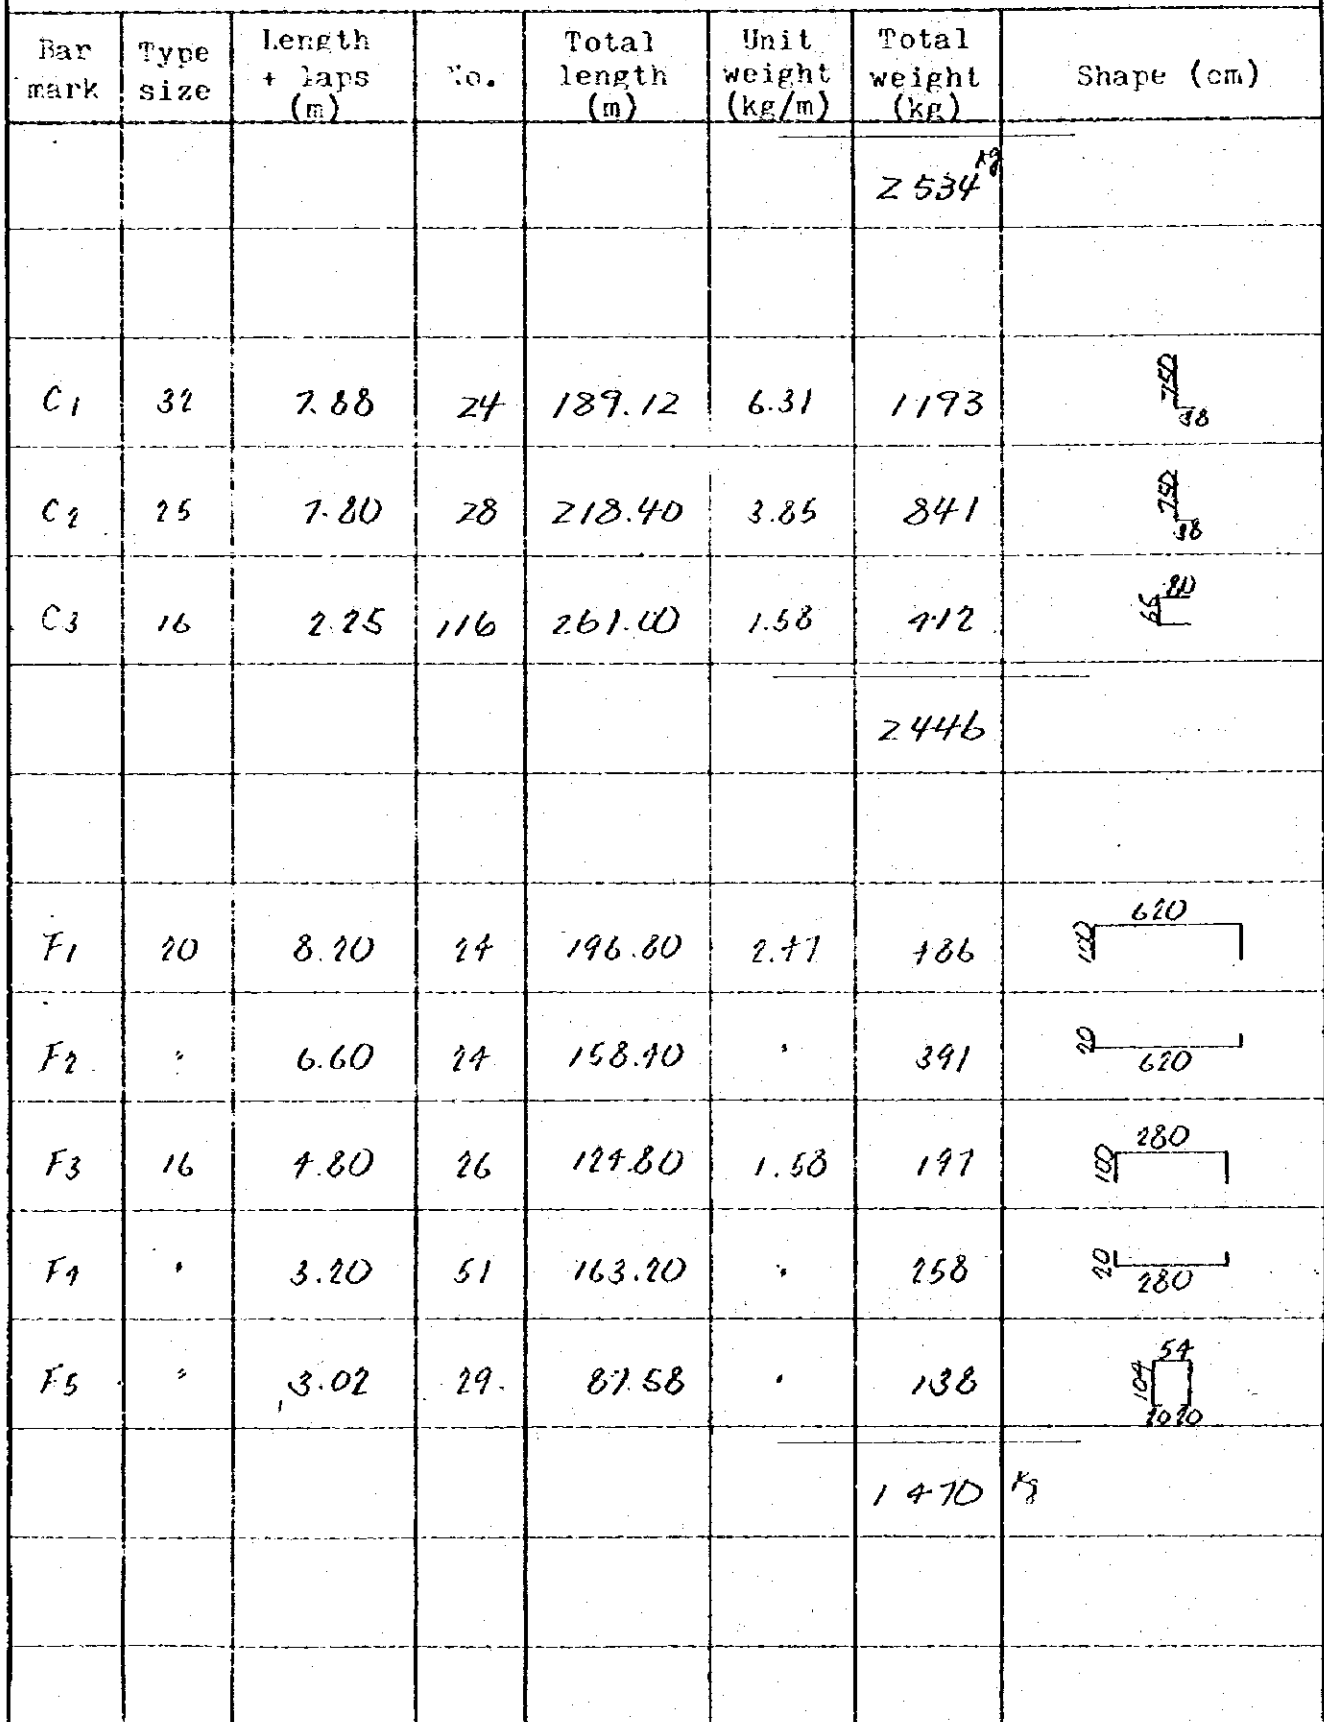 Bar mark Type size Length + laps (m) No. Total length (m) Unit weight (kg/m) Total weight (kg) Shape (cm)
2534 kg
C1 32 7.88 24 189.12 6.31 1193 750 38
C2 25 7.80 28 218.40 3.85 841 750 38
C3 16 2.25 116 261.00 1.58 412 65 80
2446
F1 20 8.20 24 196.80 2.47 486 100 620
F2 " 6.60 24 158.40 " 391 20 620
F3 16 4.80 26 124.80 1.58 197 100 280
F4 " 3.20 51 163.20 " 258 20 280
F5 " 3.02 29 87.58 " 138 104 54 20 20
1470 kg